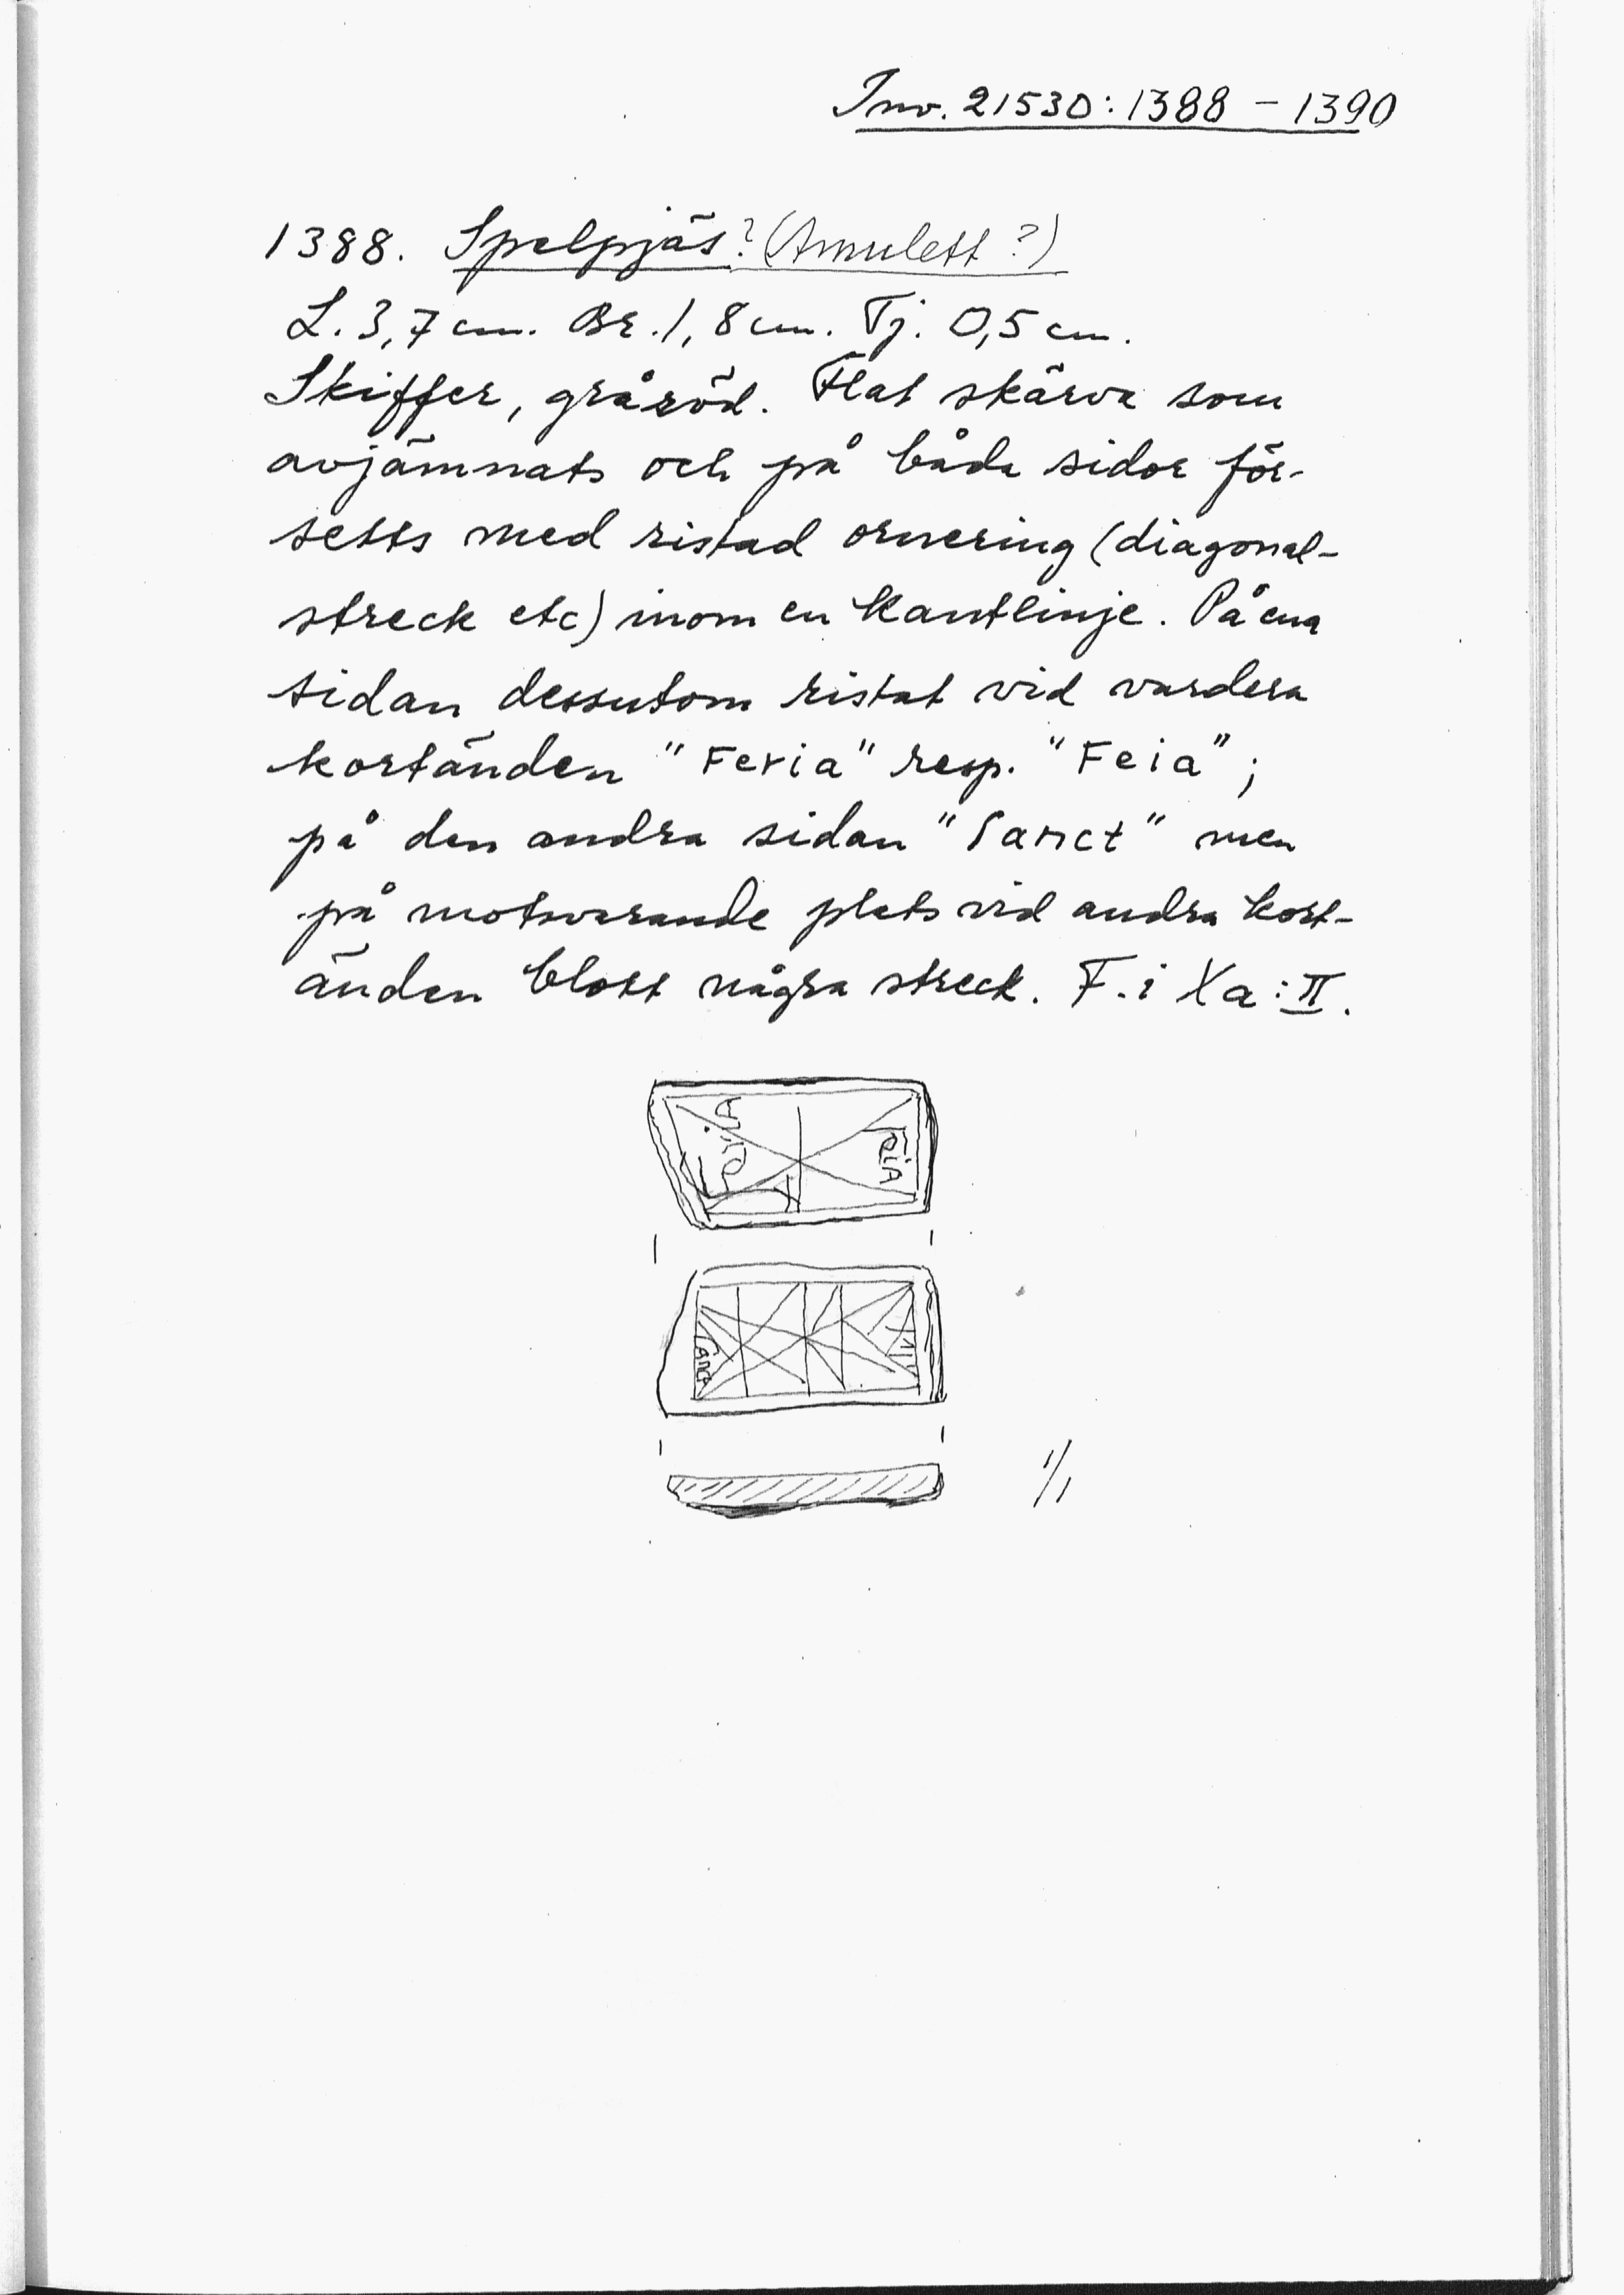 Inv. 21530:1388 – 1390
1388. Spelpjäs? (Amulett?)
L. 3,7 cm. Br. 1,8 cm. Tj. 0,5 cm.
Skiffer, gråröd. Flat skärva som
avjämnats och på båda sidor för-
setts med ristad ornering (diagonal-
streck etc) inom en kantlinje. På ena
sidan dessutom ristat vid vardera
kortänden "Feria" resp. "Feia";
på den andra sidan "Sanct" men
på motsvarande plats vid andra kort-
änden blott några streck. F. i Xa:II.
FeiA
1/1